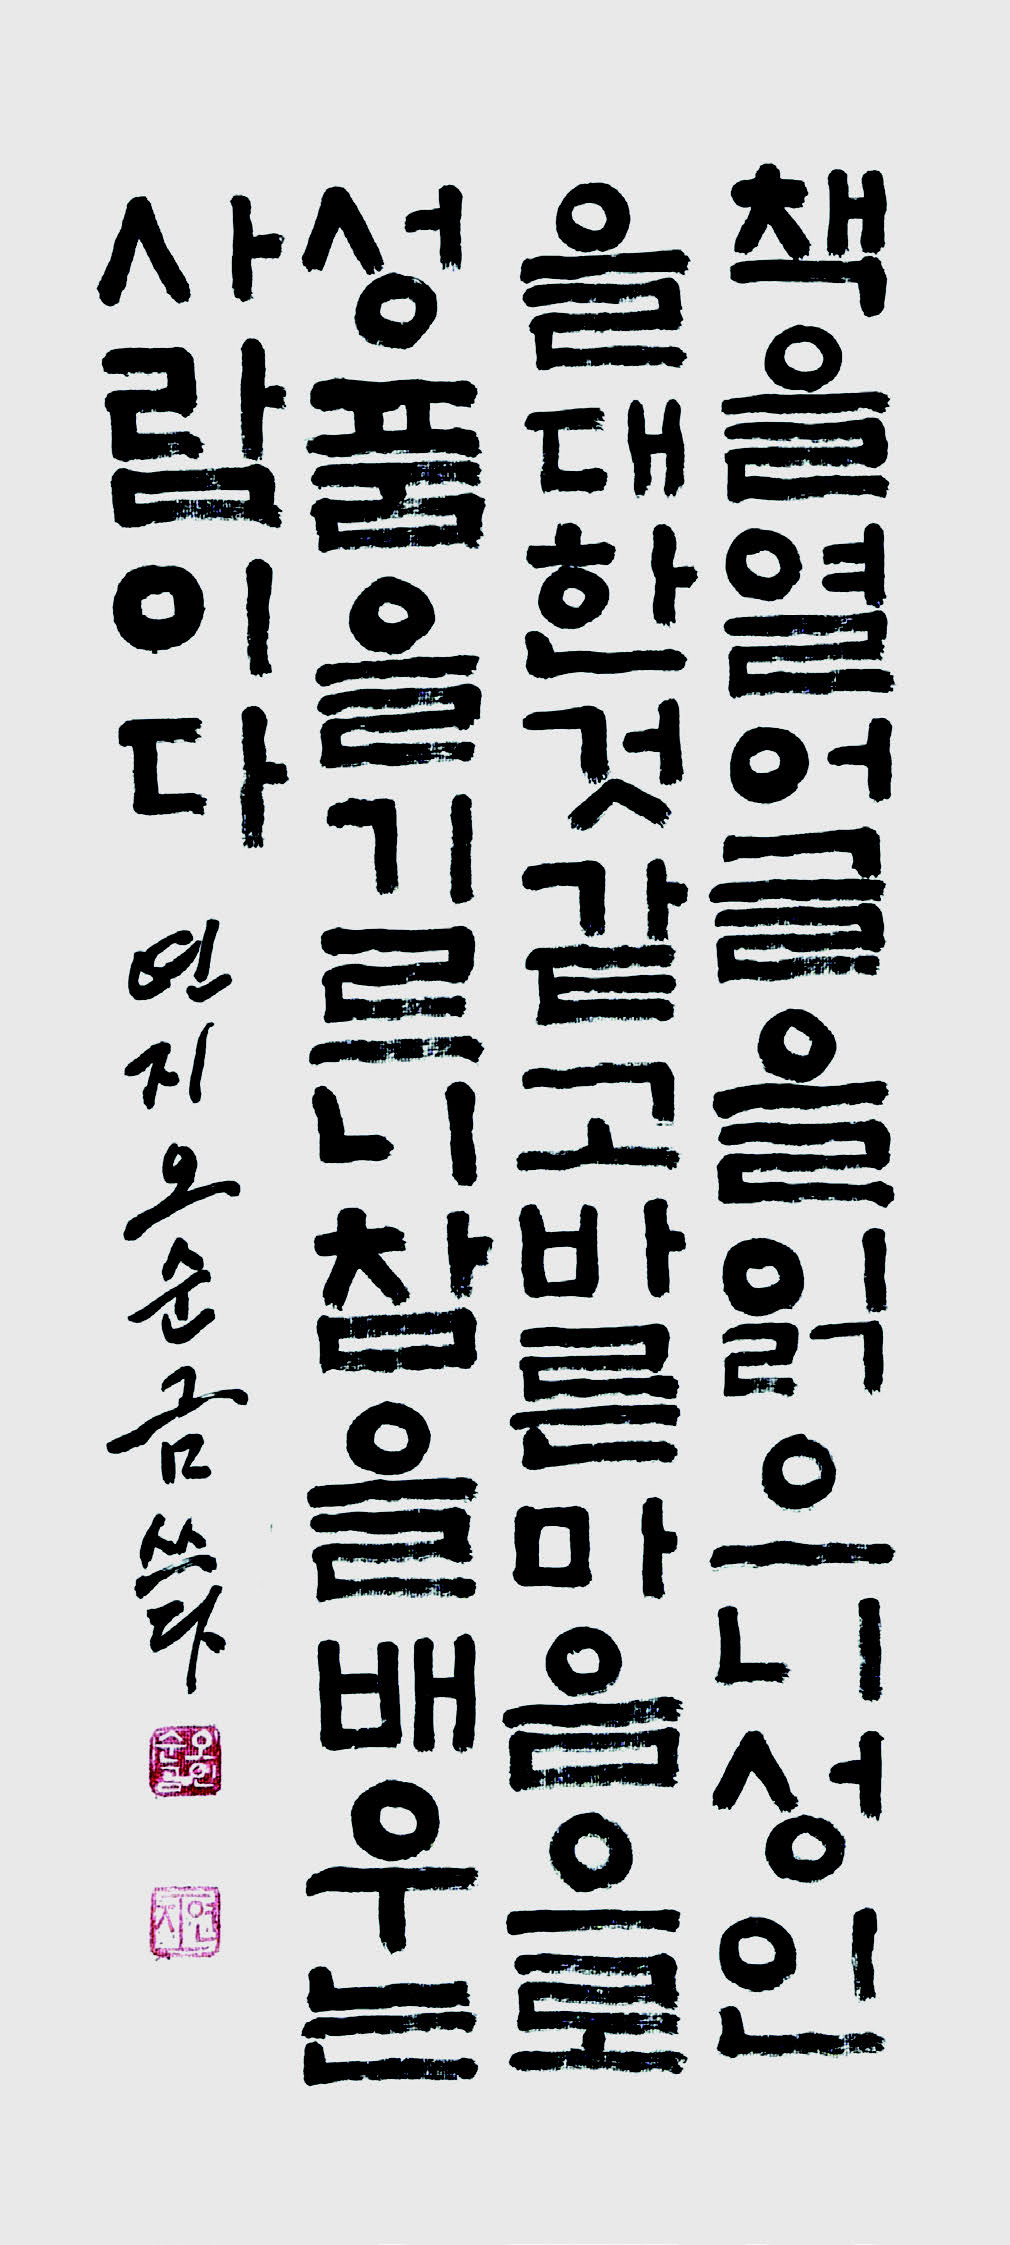 책을열어글을읽으니성인
을대한것같고바른마음으로
성품을기르니참을배우는
사람이다
연지오순금쓰다
오인순금
연지